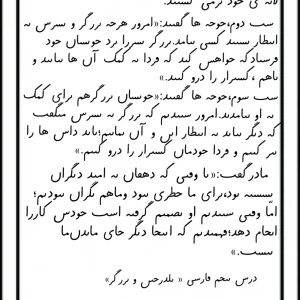 لانه ی خود نرمی گشتند.
شب دوم،جوجه ها گفتند:«امروز هرچه برزگر و پسرش به
انتظار نشستند کسی نیامد.برزگر پسررا نزد خویشان خود
فرستادکه خواهش کند که فردا به کمک آن ها بیایند و
باهم ،کشتزار را درو کنند.»
شب سوم،جوجه ها گفتند:«خویشان برزگرهم برای کمک
به او نیامدند.امروز شنیدیم که برزگر به پسرش میگفت
که دیگر نباید به انتظار این و آن بنشینیم؛باید داس ها را
تیز کنیم و فردا خودمان کشتزار را درو کنیم.»
مادرگفت:«تا وقتی که دهقان به امید دیگران
نشسته بود،برای ما خطری نبود وماهم نگران نبودیم؛
امّا وقتی شنیدیم او تصمیم گرفته است خودش کاررا
انجام دهد؛فهمیدیم که اینجا دیگر جای ماندن‌ما
نیست.»
درس پنجم فارسی « بلدرچین و برزگر»